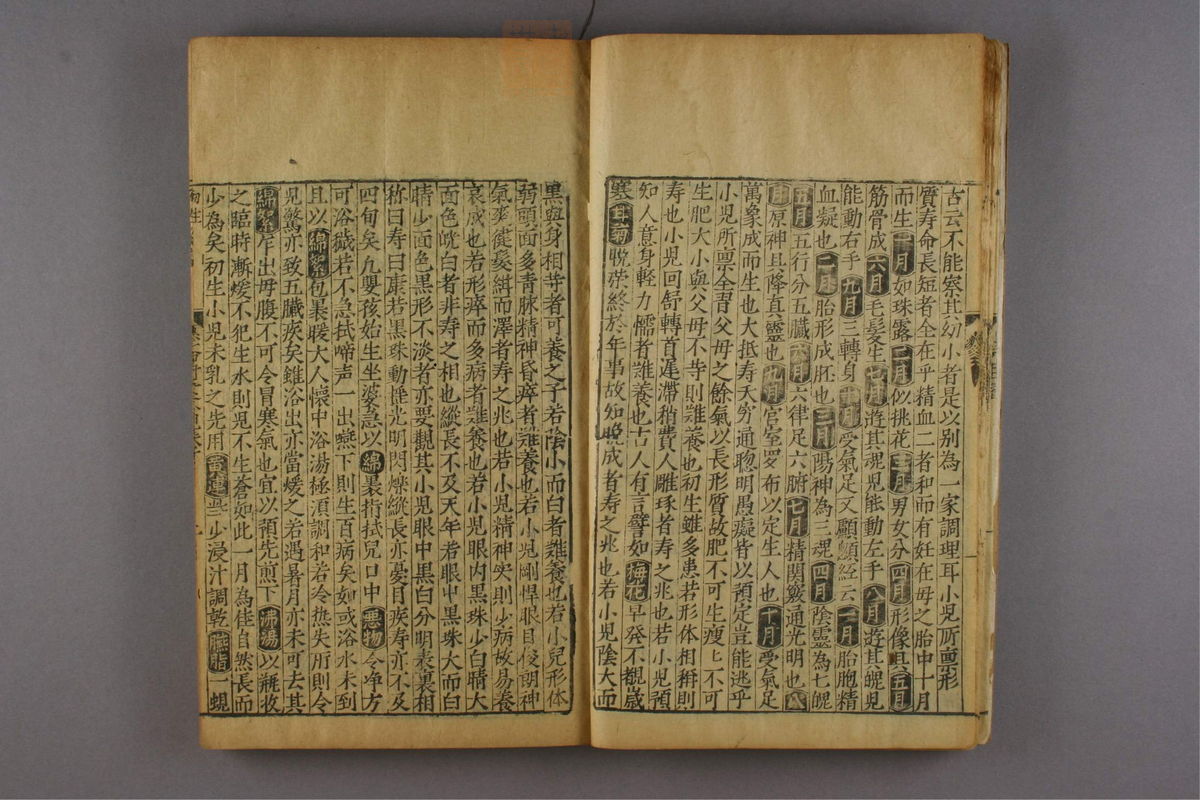 古云不能察其幼小者是以别為一家調理耳小児所禀形
質寿命長短者全在乎精血二者和而有妊在母之胎中十月
而生一月如珠露二月似桃花三月男女分四月形像具五月
筋骨成六月毛髪生七月遊其魂児能動左手八月遊其魄児
能動右手九月三轉身十月受氣足又顱顖経云一月胎胞精
血凝也二月胎形成胚也三月陽神為三魂四月陰霊為七魄
五月五行分五臓六月六律足六腑七月精関竅通光明也八
月原神具降真靈也九月宮室罗布以定生人也十月受氣足
萬象成而生也大抵寿夭穷通聰明愚癡皆以預定豈能逃乎
小児所禀全習父母之餘氣以長形質故肥不可生瘦上不可
生肥大小與父母不等則难養也初生雖多患若形体相稱則
寿也小児回舒轉首遲滯稍費人雕琢者寿之兆也若小児預
知人意身輕力懦者难養也古人有言譬如梅花早発不覩歳
寒甘菊晩荣終於年事故知晩成者寿之兆也若小児陰大而
黒與身相等者可養之子若陰小而白者难養也若小兒形体
弱頭面多青脉精神昏瘁者难養也若小児剛悍眼目俊朗神
氣爽徤髪緝而澤者寿之兆也若小児精神实則少病故易養
衰威也若形瘁而多病者难養也若小児眼内黒珠少白睛大
面色㿠白者非寿之相也縱長不及天年若眼中黒珠大而白
睛少面色黒形不淡者亦要觀其小児眼中黒白分明表裏相
称曰寿曰康若黒珠動揺光明閃爍縱長亦憂目疾寿亦不及
四旬矣凢嬰孩始生坐婆急以綿裹指拭兒口中悪物令净方
可浴穢若不急拭啼声一出嚥下則生百病矣如或浴水未到
且以綿絮包裹暖大人懐中浴湯極湏調和若冷热失所則令
児驚亦致五臓疾矣雖浴出亦當煖之若遇暑月亦未可去其
綿絮乍出母腹不可令冒寒氣也宜以預先煎下沸湯以瓶收
之臨時漸煖不犯生水則児不生蒼如此一月為佳自然長而
少為矣初生小児未乳之先用黄連些少浸汁調乾臙脂蜆